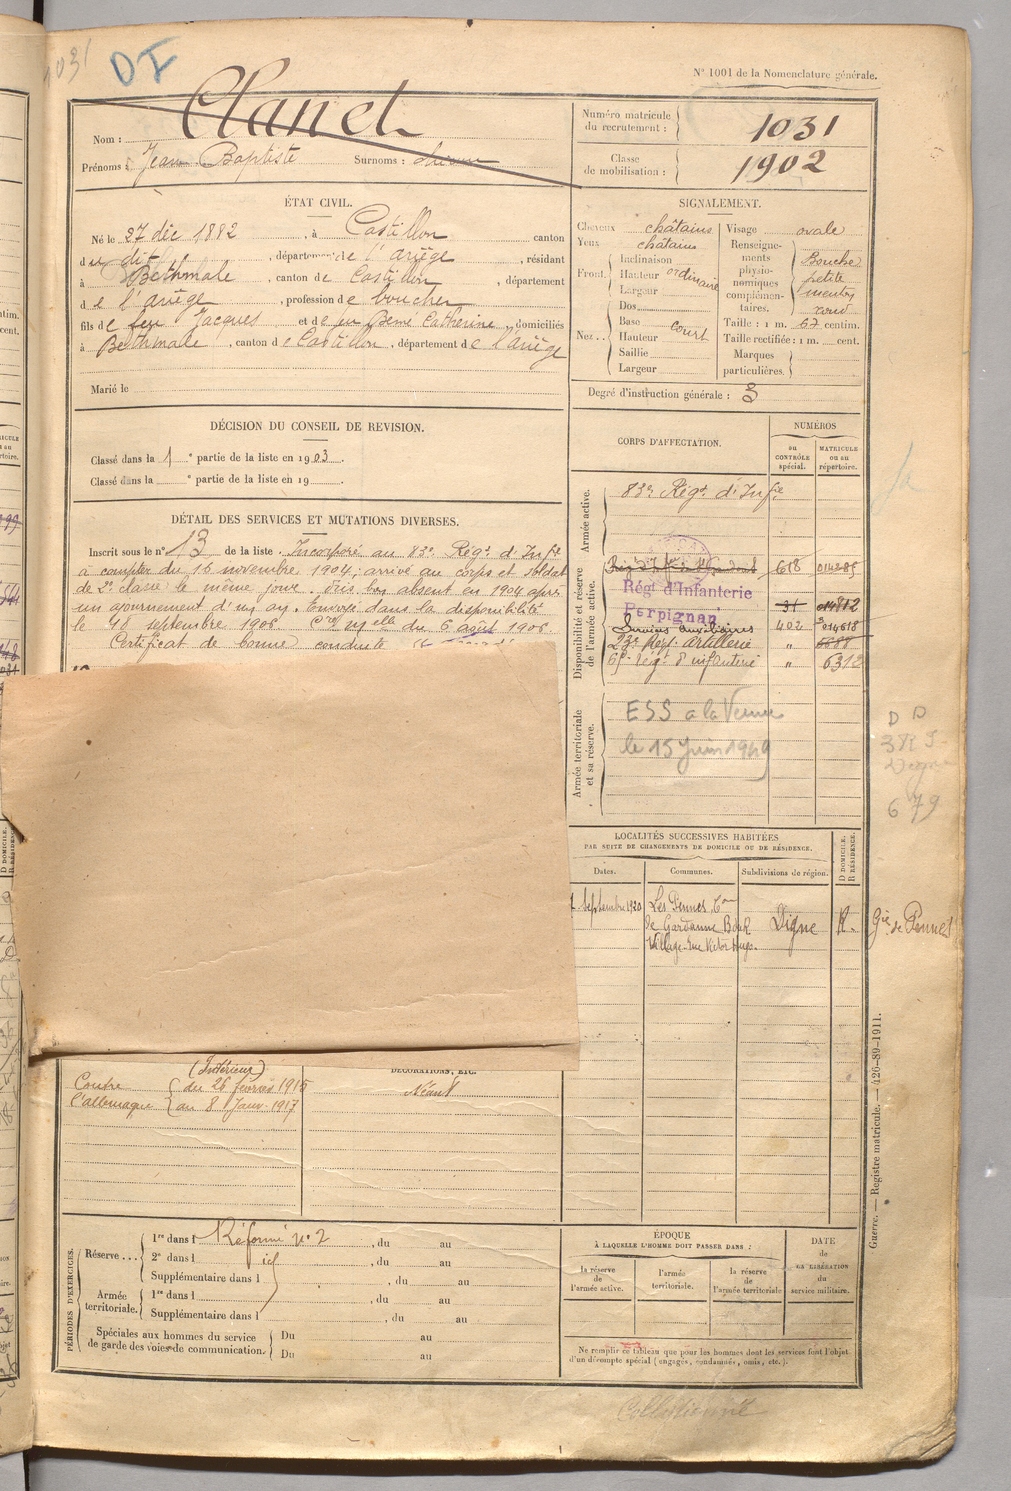 1031
DF
N° 1001 de la Nomenclature générale.
Nom : Clanet
Prénoms : Jean Baptiste Surnoms :
Numéro matricule du recrutement : 1031
Classe de mobilisation : 1902
ÉTAT CIVIL.
Né le 27 déc 1882, à Castillon canton
du dit, département de l'ariège, résidant
à Bethmale, canton de Castillon, département
de l'ariège, profession de boucher
fils de feu Jacques et de Catherine, domiciliés
à Bethmale, canton de Castillon, département de l'ariège
Marié le
SIGNALEMENT.
Cheveux châtains
Yeux châtains
Front. Inclinaison
Hauteur ordinaire
Largeur
Nez. Dos
Base
Hauteur court
Saillie
Largeur
Visage ovale
Renseignements physionomiques complémentaires. Bouche petite menton rond
Taille : 1 m. 67 centim.
Taille rectifiée : 1 m. cent.
Marques particulières.
Degré d'instruction générale : 3
DÉCISION DU CONSEIL DE REVISION.
Classé dans la 1 e partie de la liste en 1903.
Classé dans la e partie de la liste en 19
DÉTAIL DES SERVICES ET MUTATIONS DIVERSES.
Inscrit sous le n° 13 de la liste. Incorporé au 83e Régt d'Infie
à compter du 16 novembre 1904; arrivé au corps et soldat
de 2e classe le même jour. bon absent en 1904 après
un ajournement d'un an. Envoyé dans la disponibilité
le 18 septembre 1906 du 6 août 1906.
Certificat de bonne conduite
CORPS D'AFFECTATION.
NUMÉROS
au CONTRÔLE spécial.
MATRICULE ou au répertoire.
Armée active.
83e Régt d'Infie
Disponibilité et réserve de l'armée active.
618
Régt d'Infanterie
Perpignan
31
Services auxiliaires 402 014618
23e Régt Artillerie " 6688
Régt d'infanterie " 6312
Armée territoriale et sa réserve.
ESS a la
le 15 Juin 1949
D D
679
LOCALITÉS SUCCESSIVES HABITÉES
PAR SUITE DE CHANGEMENTS DE DOMICILE OU DE RÉSIDENCE.
Dates.
Communes.
Subdivisions de région.
D DOMICILE. R RÉSIDENCE.
Septembre 1920 Les Pennes, Con Digne R. Gie de Pennes
de Gardanne B du R
Village rue Victor Hugo.
(Intérieur)
Contre l'allemagne
du 26 février 1915
au 8 Janv. 1917
DÉCORATIONS, ETC.
Néant
Guerre. — Registre matricule. — 426-89-1911.
PÉRIODES D'EXERCICES.
Réserve... 1re dans l Réformé n° 2, du au
2e dans l id, du au
Supplémentaire dans l, du au
Armée territoriale. 1re dans l, du au
Supplémentaire dans l, du au
Spéciales aux hommes du service de garde des voies de communication. Du au
Du au
ÉPOQUE
À LAQUELLE L'HOMME DOIT PASSER DANS :
la réserve de l'armée active.
l'armée territoriale.
la réserve de l'armée territoriale
DATE de LA LIBÉRATION du service militaire.
Ne remplir ce tableau que pour les hommes dont les services font l'objet
d'un décompte spécial (engagés, condamnés, omis, etc.).